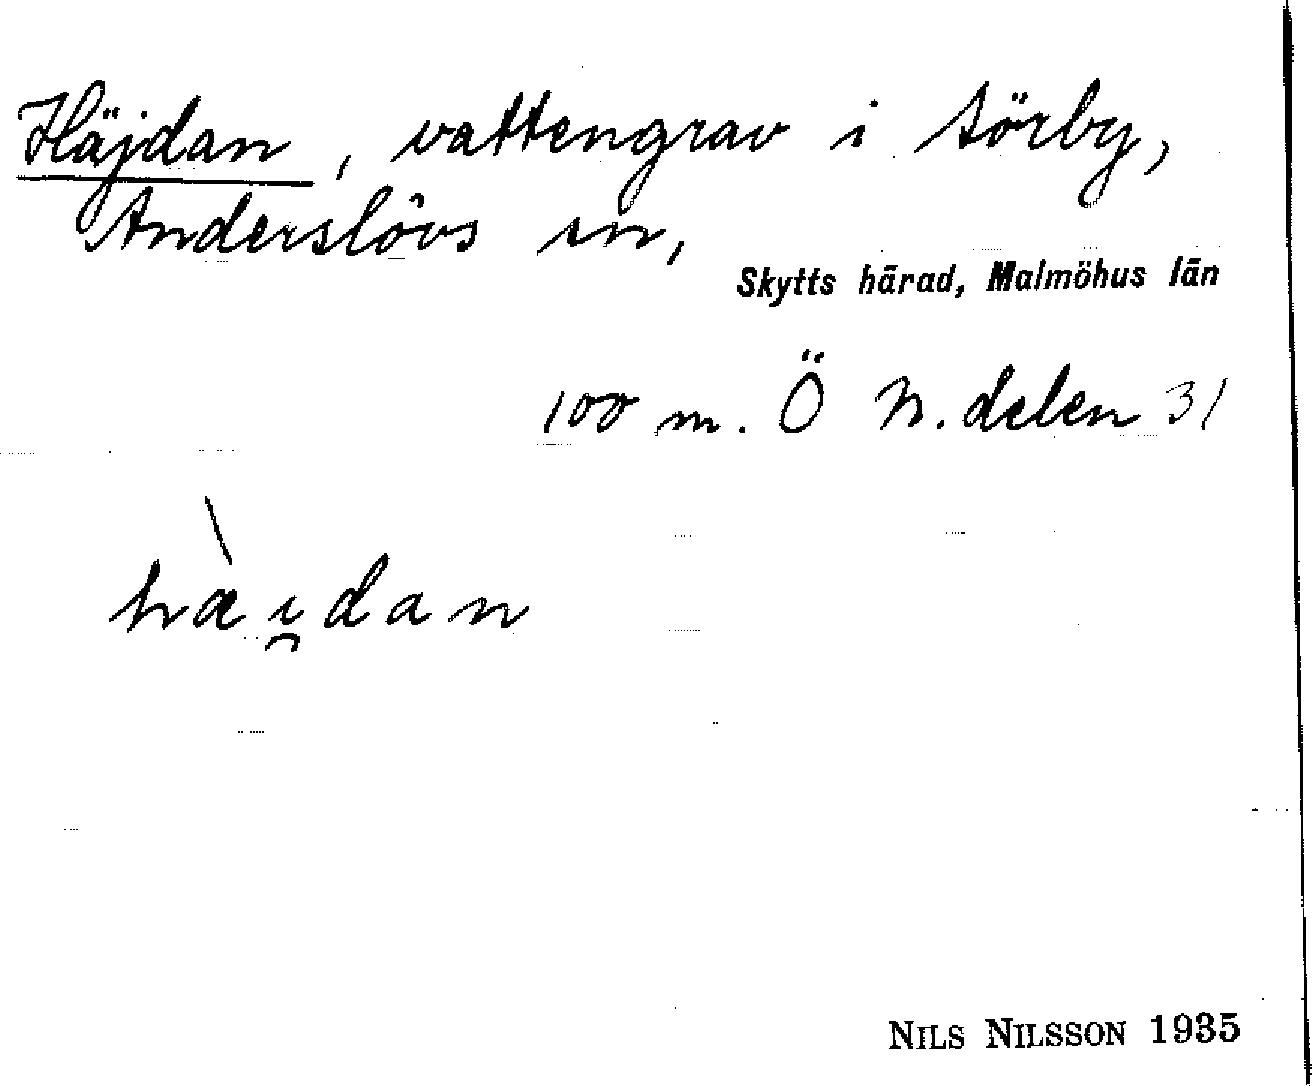 Häjdan, vattengrav i Sörby,
Anderslövs sn,
Skytts härad, Malmöhus län
100 m. Ö N. delen 31
hæ̀i̯dan
NILS NILSSON 1935